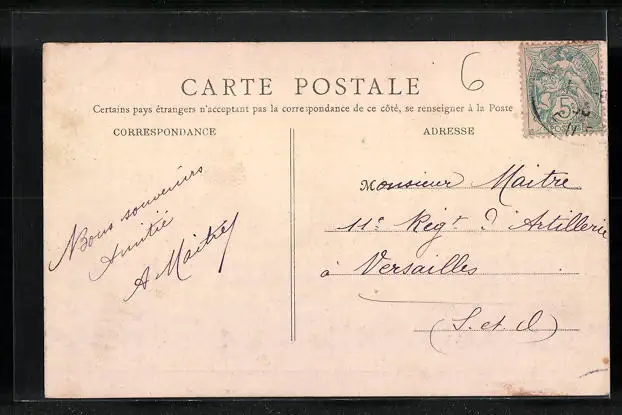 6
CARTE POSTALE
Certains pays étrangers n'acceptant pas la correspondance de ce côté, se renseigner à la Poste
CORRESPONDANCE
Bons souvenirs
Amitié
A Maitre
ADRESSE
Monsieur Maitre
11e Régt d'Artillerie
à Versailles
(S. et O)
5c
POSTES